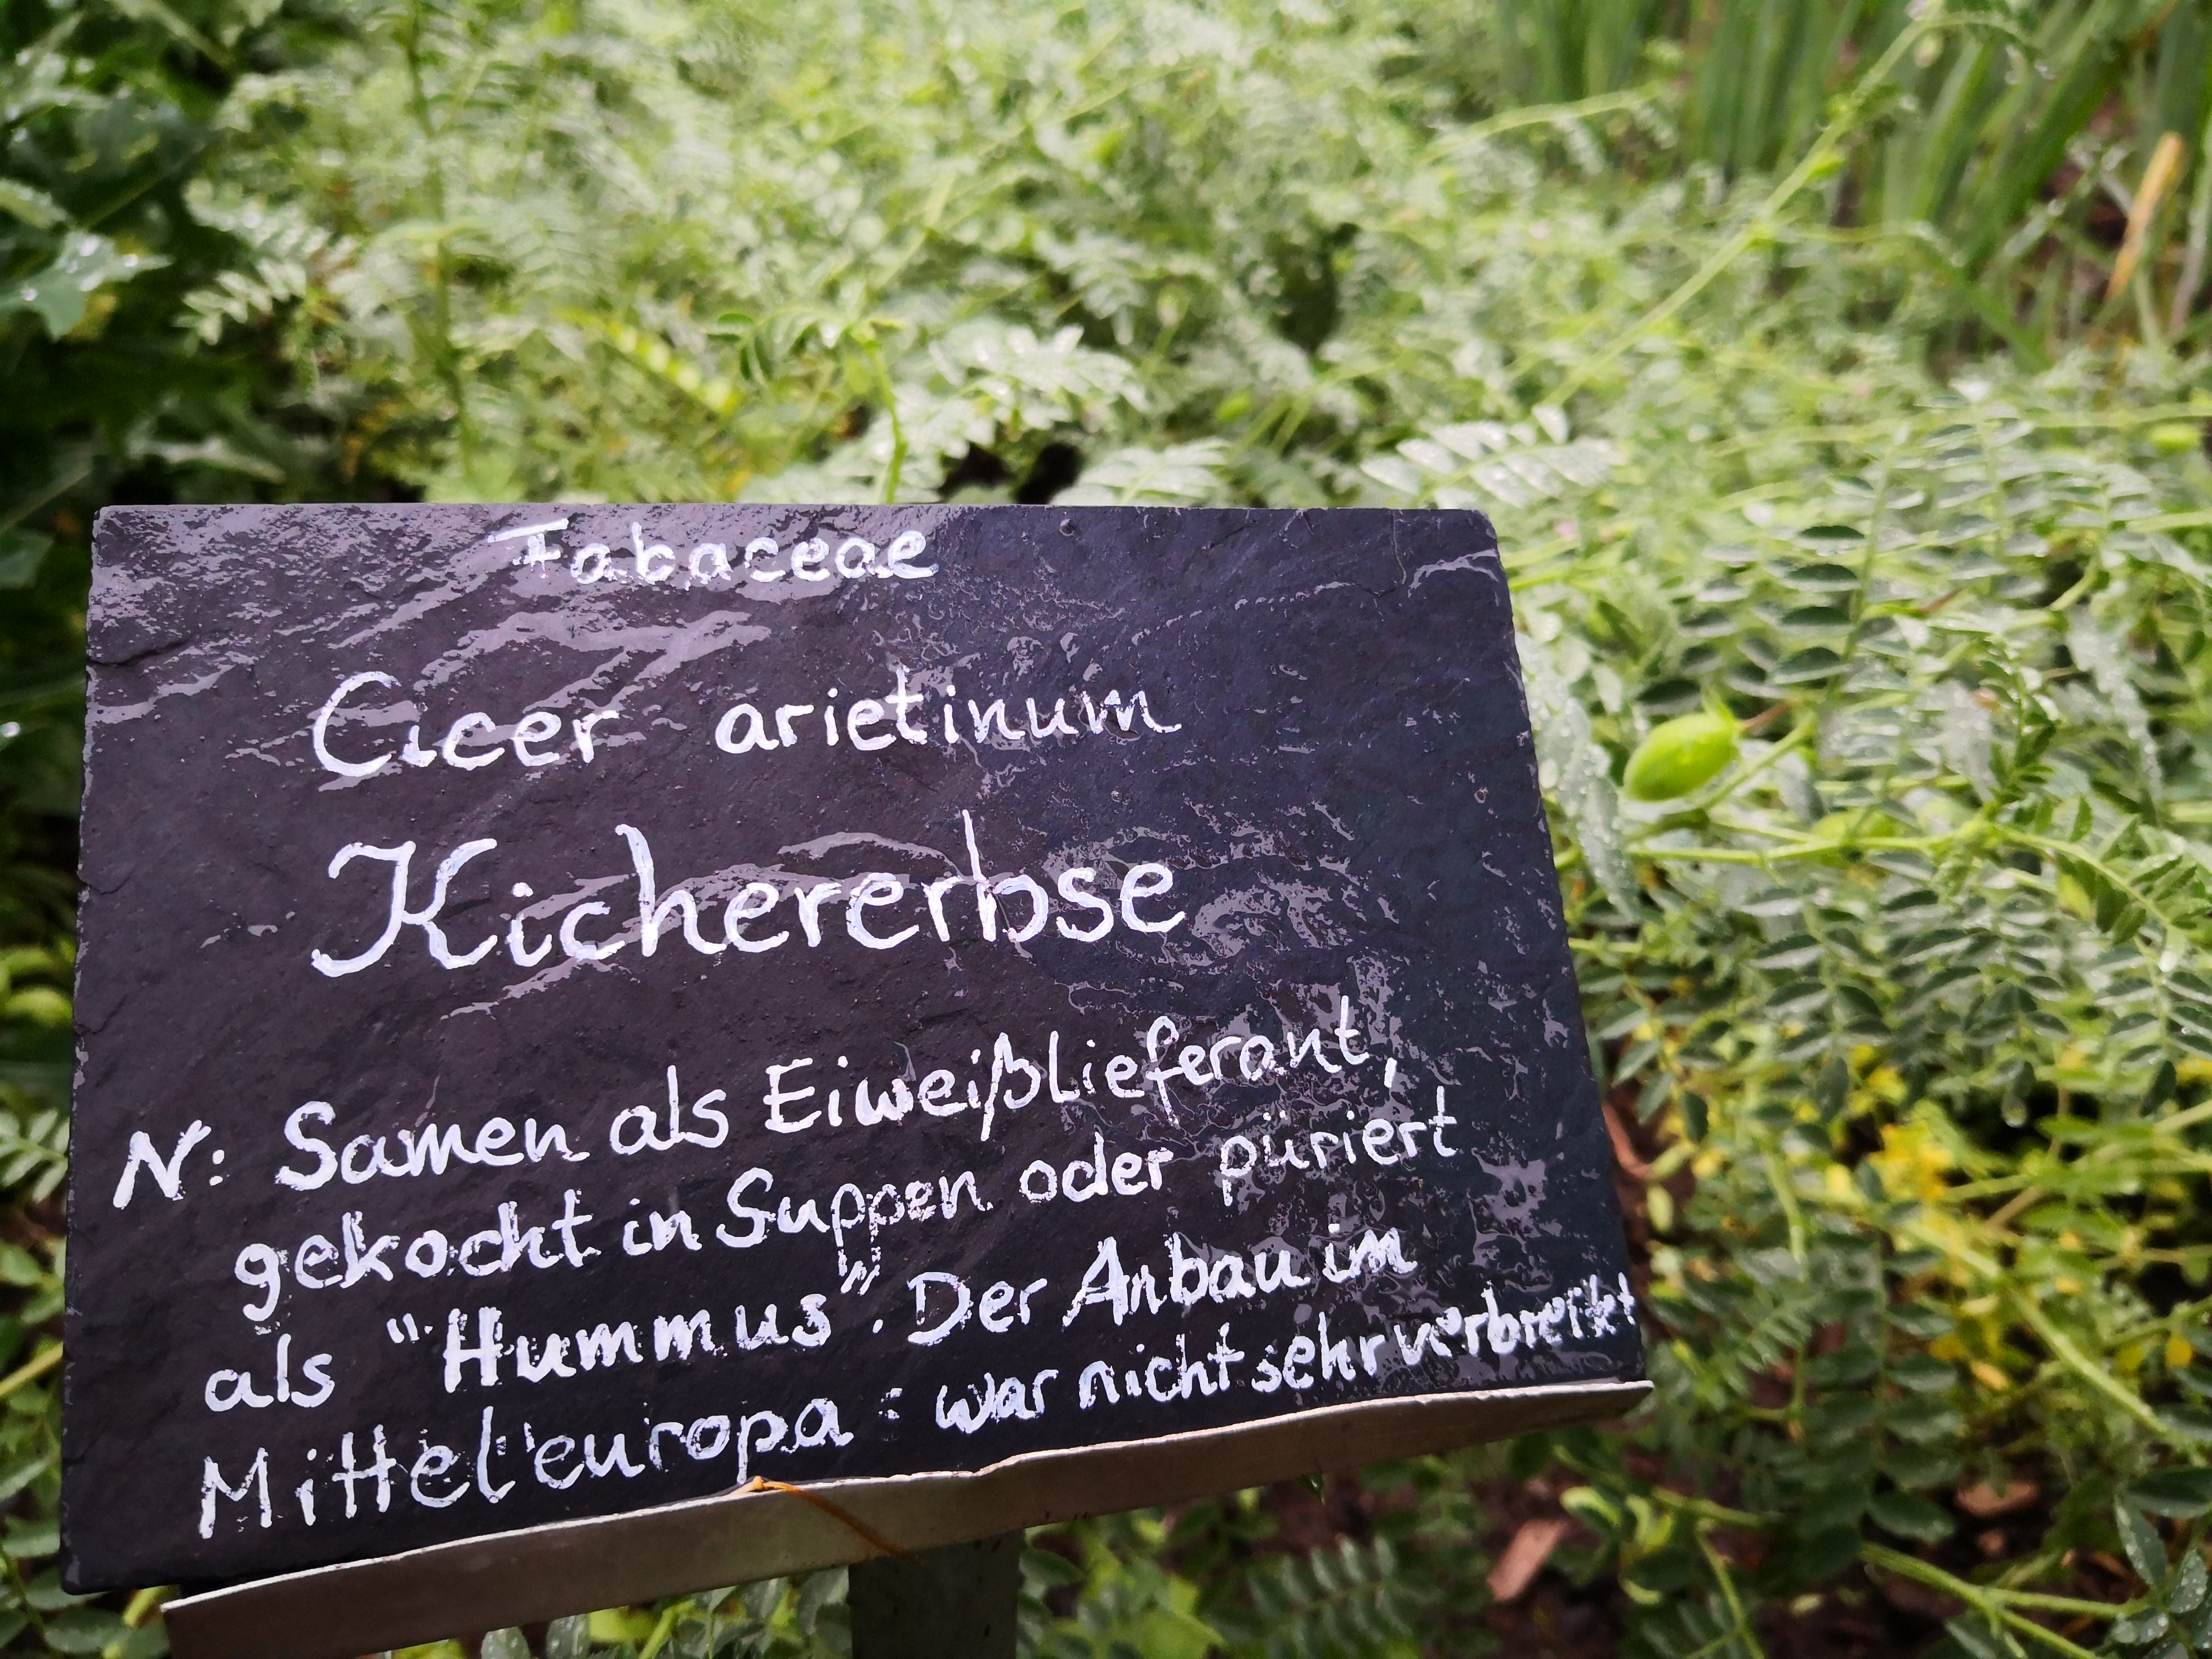 Fabaceae
Cicer arietinum
Kichererbse
N: Samen als Eiweißlieferant,
gekocht in Suppen oder püriert
als "Hummus". Der Anbau im
Mitteleuropa : war nicht sehr verbreitet